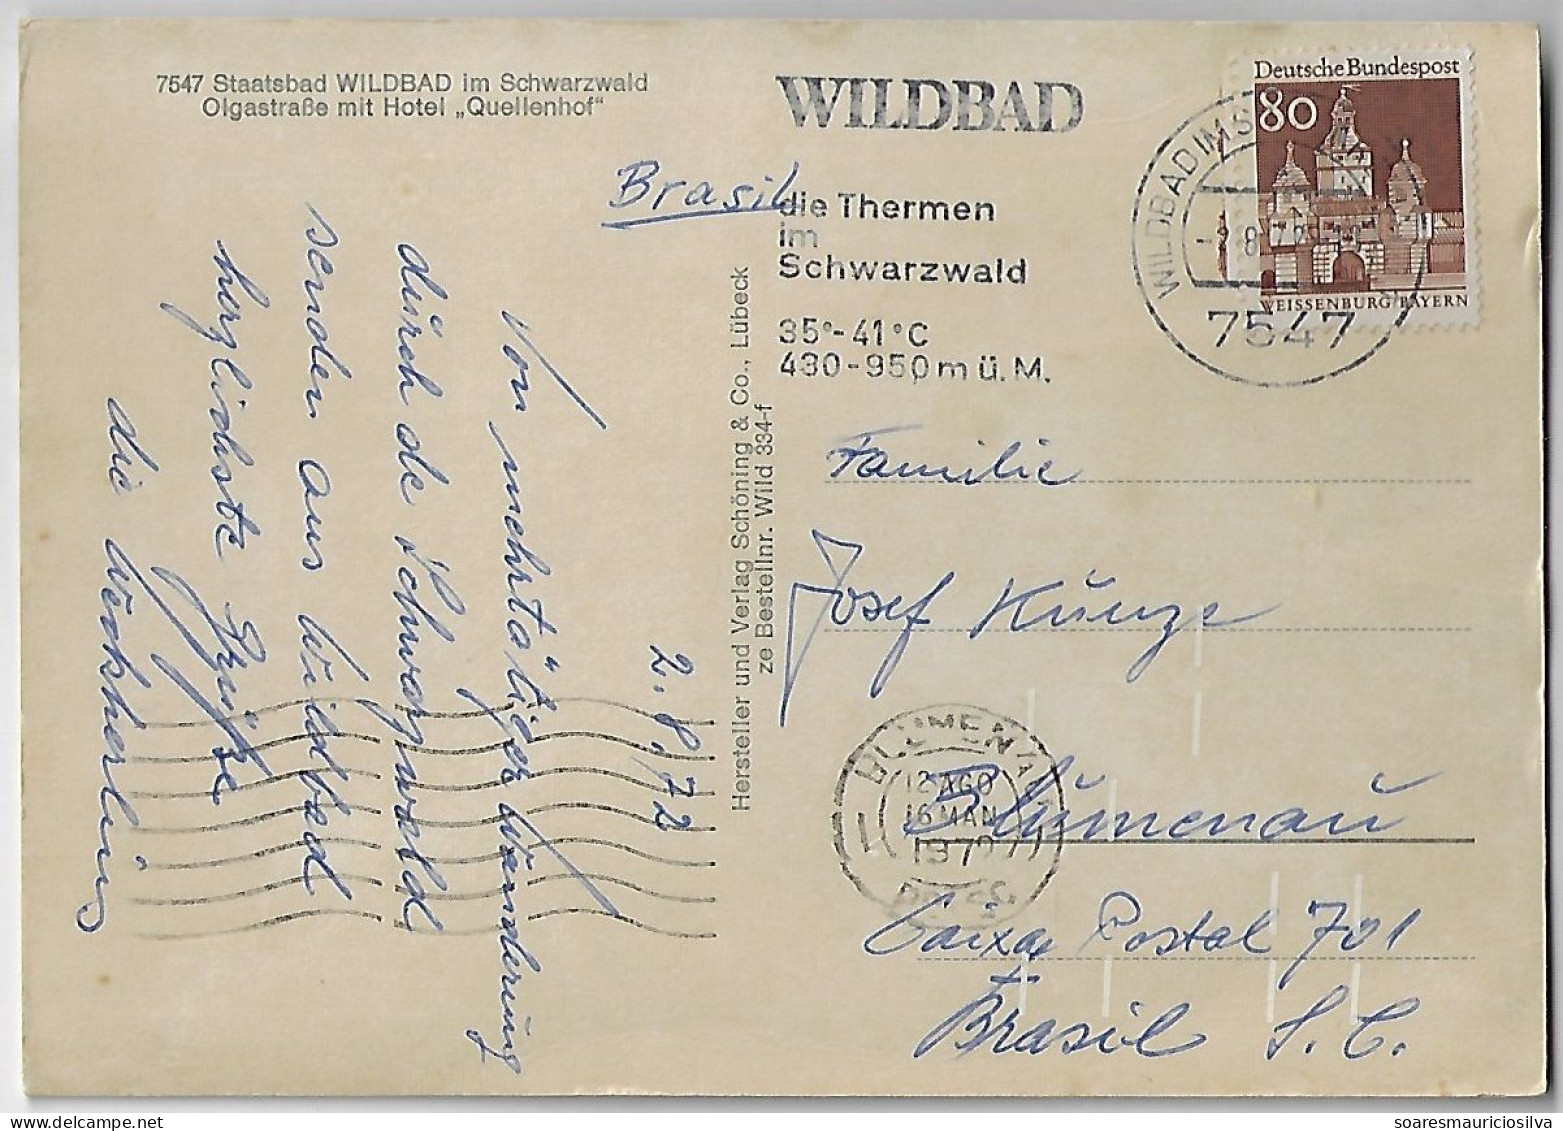 7547 Staatsbad WILDBAD im Schwarzwald
Olgastraße mit Hotel „Quellenhof"
WILDBAD
die Thermen
im
Schwarzwald
35°-41°C
430-950m ü.M.
Deutsche Bundespost
80
WEISSENBURG/BAYERN
WILDBAD IM S
-2.8.72
7547
Brasil
2.8.72
Von mehrtätiger Wanderung
durch de Schwarzwald
senden aus Wildbad
herzlichste Grüße
die
Hersteller und Verlag Schöning & Co., Lübeck
ze Bestellnr. Wild 334-f
Familie
Josef Kunze
Blumenau
Caixa Postal 701
Brasil S.C.
BLUMENAU
12 AGO
16 MAN
197
soaresmauriciosilva